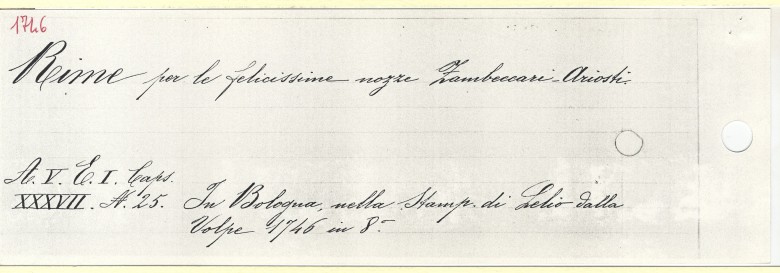 1746
Rime per le felicissime nozze Zambeccari-Ariosti.
A. V. E. I. Caps.
XXXVII. N. 25. In Bologna, nella Stamp. di Lelio dalla
Volpe 1746 in 8.